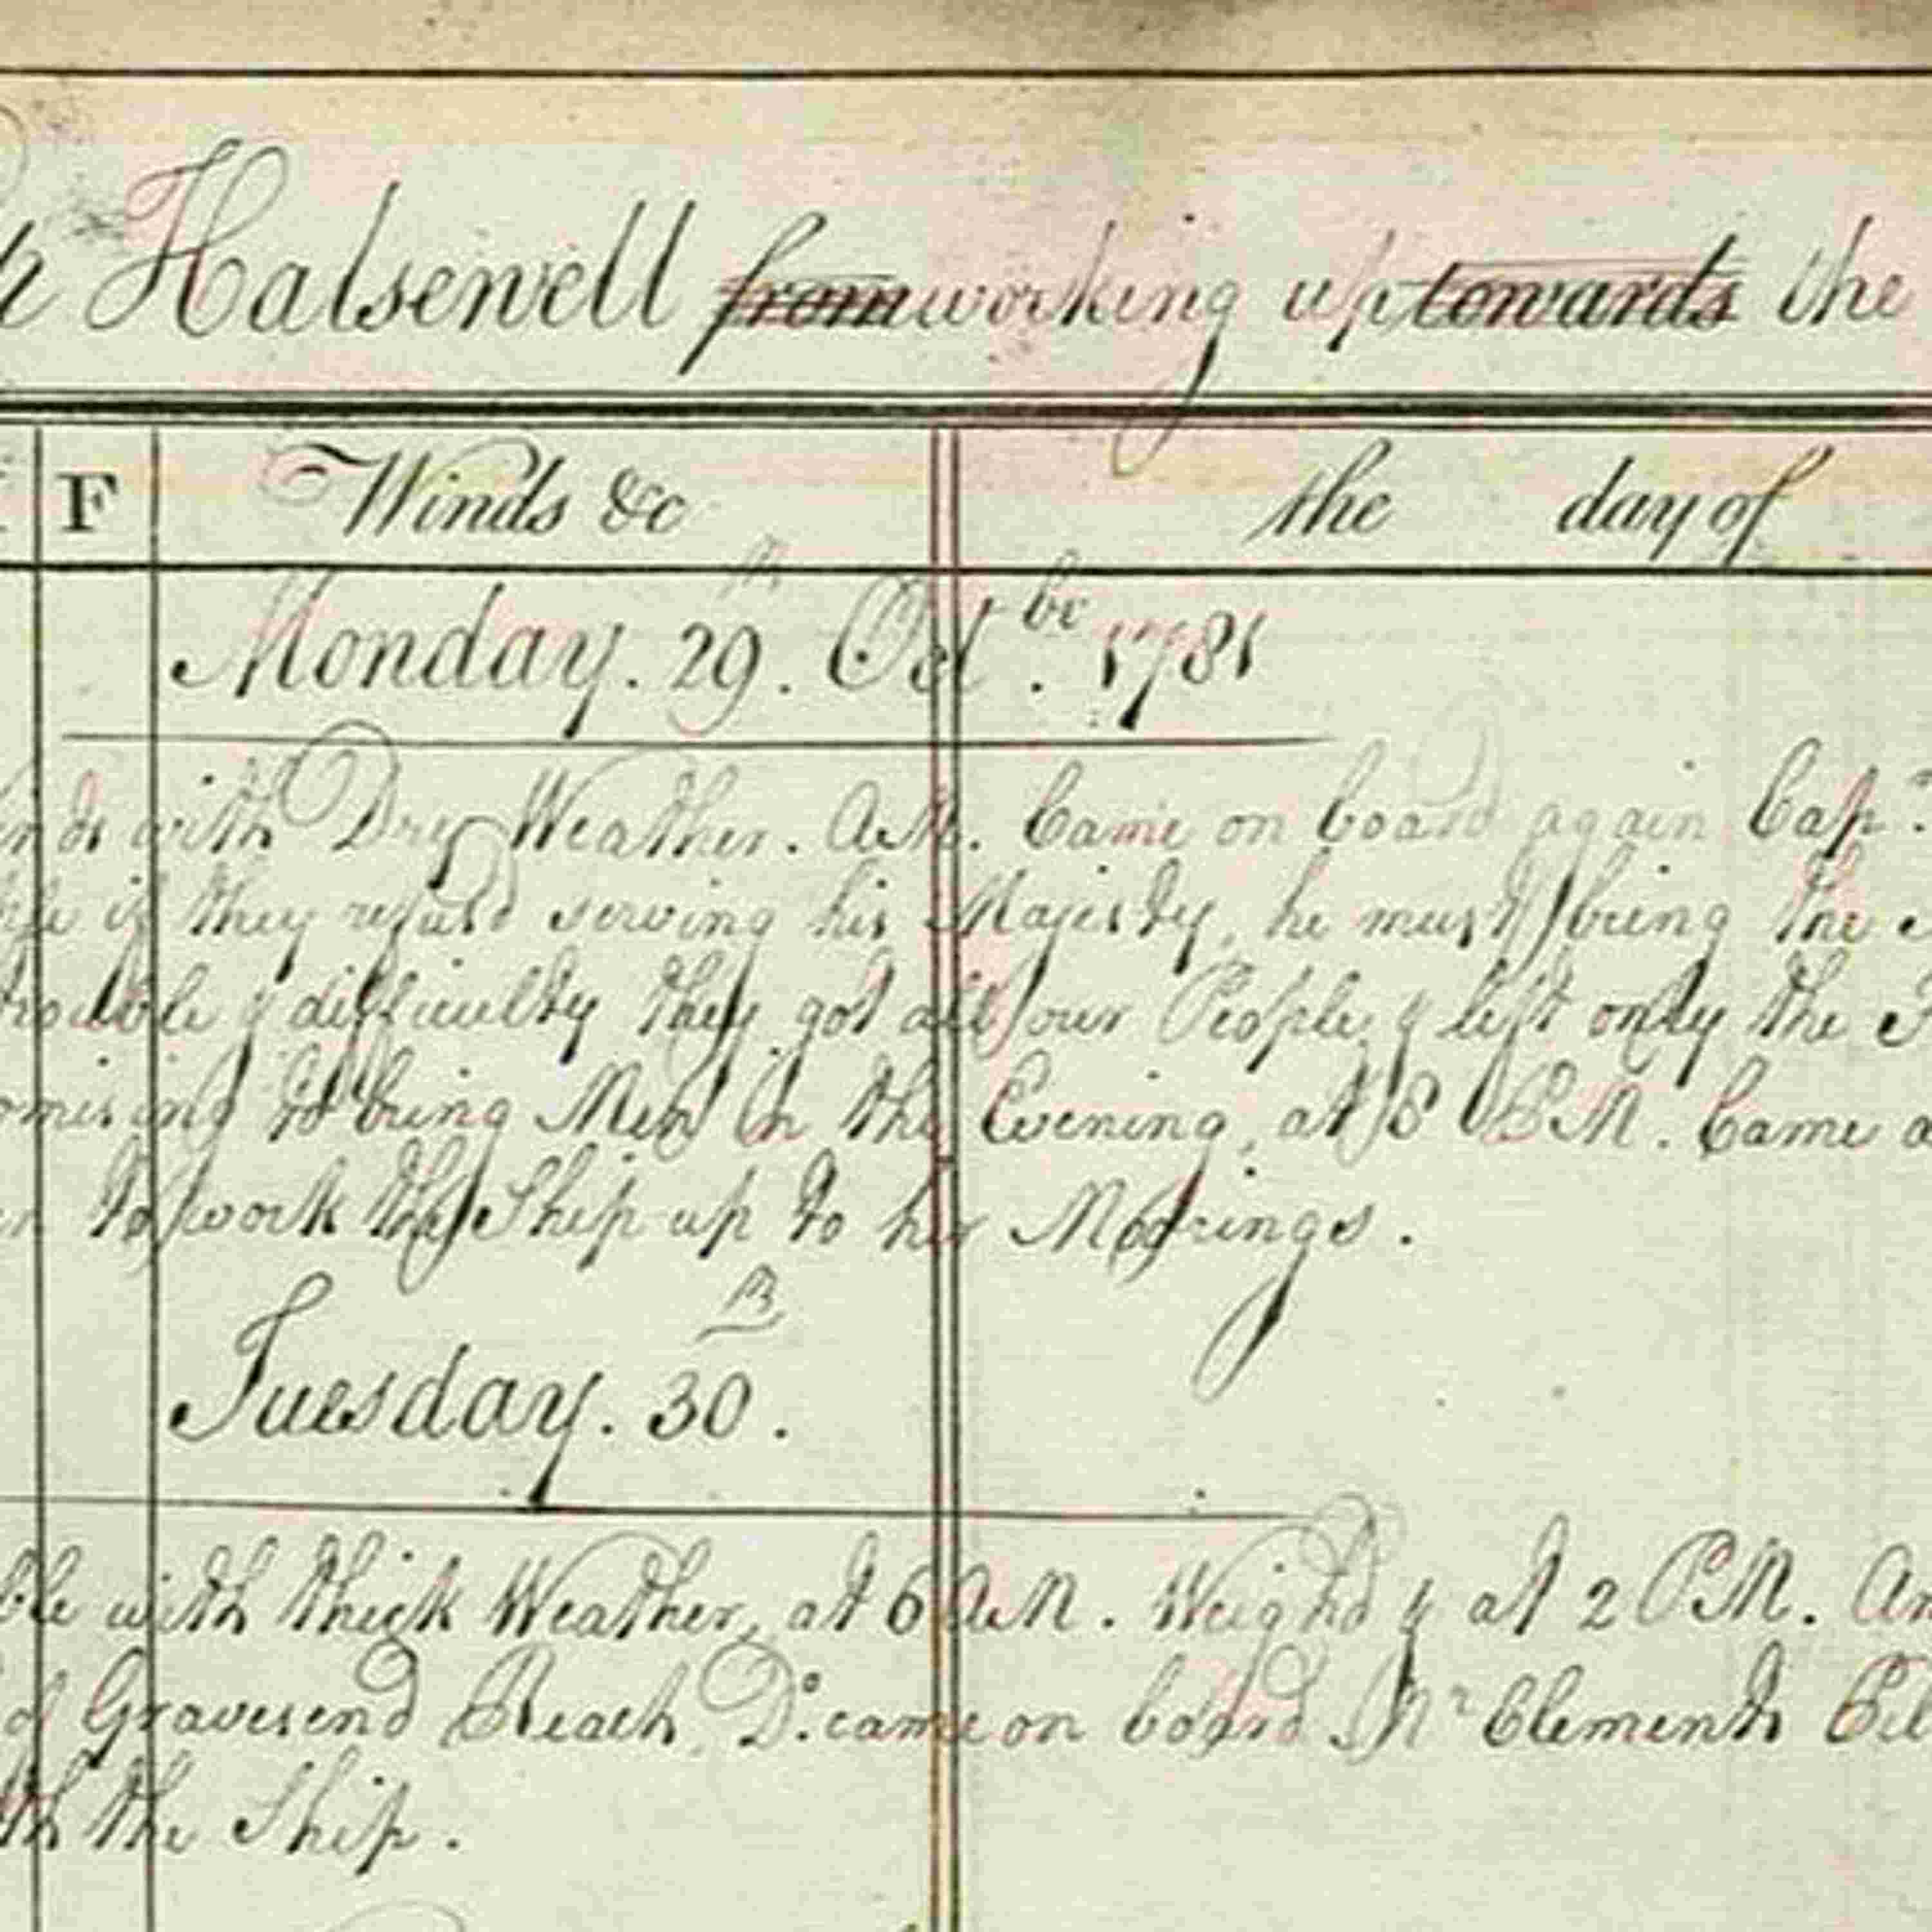 Halsewell from working up towards the
F Winds &c the day of
Monday. 29th. Octbr. 1781
with Dry Weather. AM. Came on board again Capt
if they refused serving his Majesty, he must bring the
trouble & difficulty they got all our People, & left only the
omising to bring Men in the Evening, at 8 PM. Came
to work the Ship up to her Moorings.
Tuesday. 30th.
ble with thick Weather, at 6 AM. Weigh'd & at 2 PM. An
of Gravesend Reach, Do. came on board Mr Clements Pil
th the Ship.